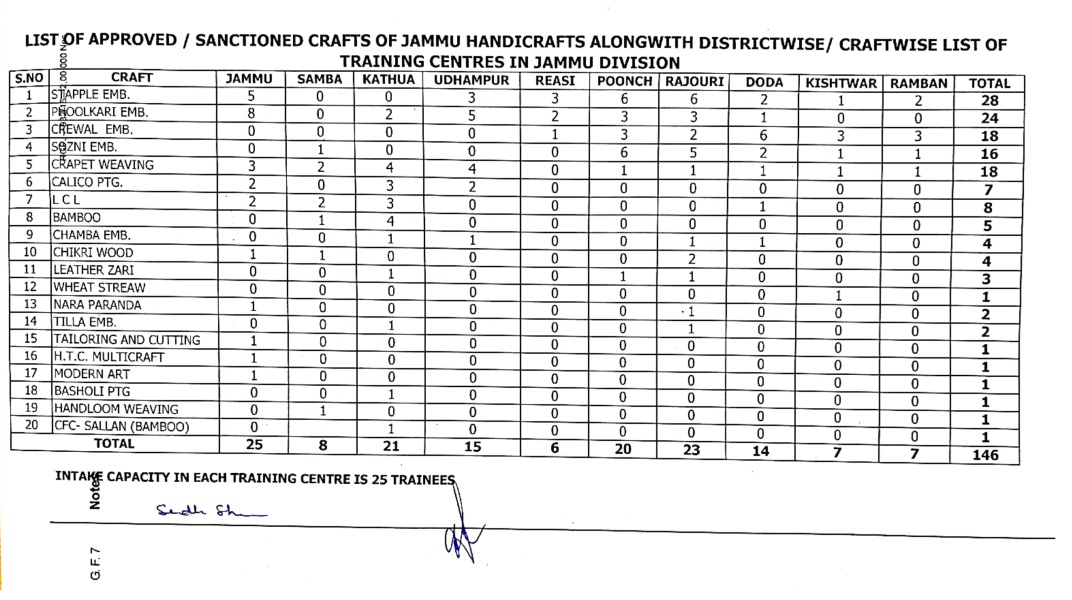 LIST OF APPROVED / SANCTIONED CRAFTS OF JAMMU HANDICRAFTS ALONGWITH DISTRICTWISE/ CRAFTWISE LIST OF
TRAINING CENTRES IN JAMMU DIVISION
S.NO CRAFT JAMMU SAMBA KATHUA UDHAMPUR REASI POONCH RAJOURI DODA KISHTWAR RAMBAN TOTAL
1 STAPPLE EMB. 5 0 0 3 3 6 6 2 1 2 28
2 PHOOLKARI EMB. 8 0 2 5 2 3 3 1 0 0 24
3 CREWAL EMB. 0 0 0 0 1 3 2 6 3 3 18
4 SOZNI EMB. 0 1 0 0 0 6 5 2 1 1 16
5 CRAPET WEAVING 3 2 4 4 0 1 1 1 1 1 18
6 CALICO PTG. 2 0 3 2 0 0 0 0 0 0 7
7 L C L 2 2 3 0 0 0 0 1 0 0 8
8 BAMBOO 0 1 4 0 0 0 0 0 0 0 5
9 CHAMBA EMB. 0 0 1 1 0 0 1 1 0 0 4
10 CHIKRI WOOD 1 1 0 0 0 0 2 0 0 0 4
11 LEATHER ZARI 0 0 1 0 0 1 1 0 0 0 3
12 WHEAT STREAW 0 0 0 0 0 0 0 0 1 0 1
13 NARA PARANDA 1 0 0 0 0 0 1 0 0 0 2
14 TILLA EMB. 0 0 1 0 0 0 1 0 0 0 2
15 TAILORING AND CUTTING 1 0 0 0 0 0 0 0 0 0 1
16 H.T.C. MULTICRAFT 1 0 0 0 0 0 0 0 0 0 1
17 MODERN ART 1 0 0 0 0 0 0 0 0 0 1
18 BASHOLI PTG 0 0 1 0 0 0 0 0 0 0 1
19 HANDLOOM WEAVING 0 1 0 0 0 0 0 0 0 0 1
20 CFC- SALLAN (BAMBOO) 0 1 0 0 0 0 0 0 0 1
TOTAL 25 8 21 15 6 20 23 14 7 7 146
INTAKE CAPACITY IN EACH TRAINING CENTRE IS 25 TRAINEES
Notes
G. F. 7